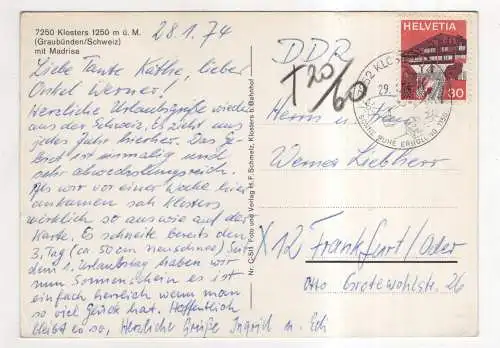 7250 Klosters 1250 m ü. M.
(Graubünden/Schweiz)
mit Madrisa
28.1.74
Liebe Tante Käthe, lieber
Onkel Werner!
Herzliche Urlaubsgrüße wieder
aus der Schweiz, es zieht uns
jedes Jahr hierher. Das Ge-
biet ist einmalig und
sehr abwechslungsreich.
Als wir vor einer Woche hier
ankamen sah Klosters
wirklich so aus wie auf der
Karte. Es schneite bereits den
3. Tag (ca. 50 cm Neuschnee) Seit
dem 1. Urlaubstag haben wir
nun Sonnenschein es ist
einfach herrlich wenn man
so viel Glück hat. Hoffentlich
bleibt es so, Herzliche Grüße Ingrid u.
Nr. C 501 Foto und Verlag H. F. Schmelz, Klosters b. Bahnhof
DDR
T 20/60
HELVETIA
30
KLOSTERS
29.
SONNE RUHE ERHOLUNG
Herrn und Frau
Werner Liebherr
X 12 Frankfurt/Oder
Otto Grotewohlstr. 26